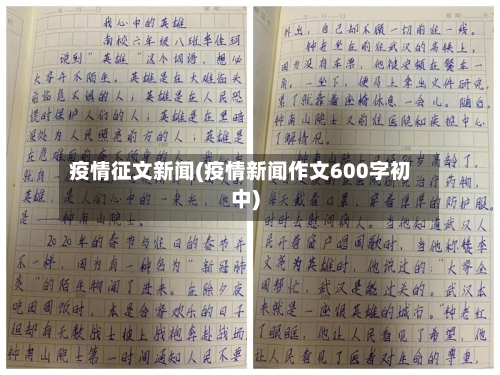 我心中的英雄
南校六年级八班李佳珂
说到“英雄”这个词语，想必
大家并不陌生。英雄是在大难临头
前临危不惧的人；英雄是在人民恐
慌时保护人们的人；英雄是在黑暗
深处为人民照亮前方的人；英雄是
疫情征文新闻(疫情新闻作文600字初
中)
是——钟南山院士。
2020年的春节与往日的春节并
不一样，因为有一种名为“新冠肺
炎”的陌生物闯了进来。在除夕夜
吃团圆饭时，本是合家欢乐的日子
但却有无数战士披上战袍奔赴战场，
钟南山院士第一时间通知人民不要
外出，自己却不顾一切前往一线。
钟老坐在前往武汉的高铁上，
因为没有车票，他被安顿在餐车一
角，一坐下，便马上拿出文件研究，
累了就靠着座椅休息一会儿。随后，
钟南山院士又前往医院和疾控中心
了解情况。
时时去慰问病人。当他知道武汉人
民开着窗户唱国歌时，当他称赞李
文亮为英雄时，他说过的：“大家全
国帮忙，武汉是能过关的。武汉本
来就是一座很英雄的城市。”钟老红
了眼眶，他让人民看见了希望，他
让人民看见了医者对生命的尊重，